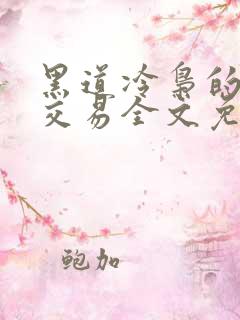 黑道冷枭的
交易全文免
鲍加